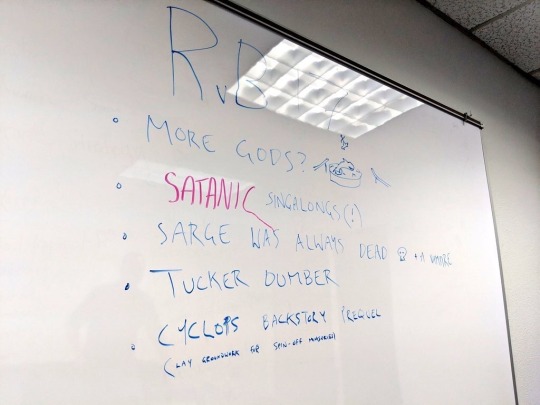 RvB 17
• MORE GODS?
• SATANIC SINGALONGS(!)
• SARGE WAS ALWAYS DEAD + A
• TUCKER DUMBER
• CYCLOPS BACKSTORY PREQUEL
(LAY GROUNDWORK FOR SPIN-OFF MINISERIES)